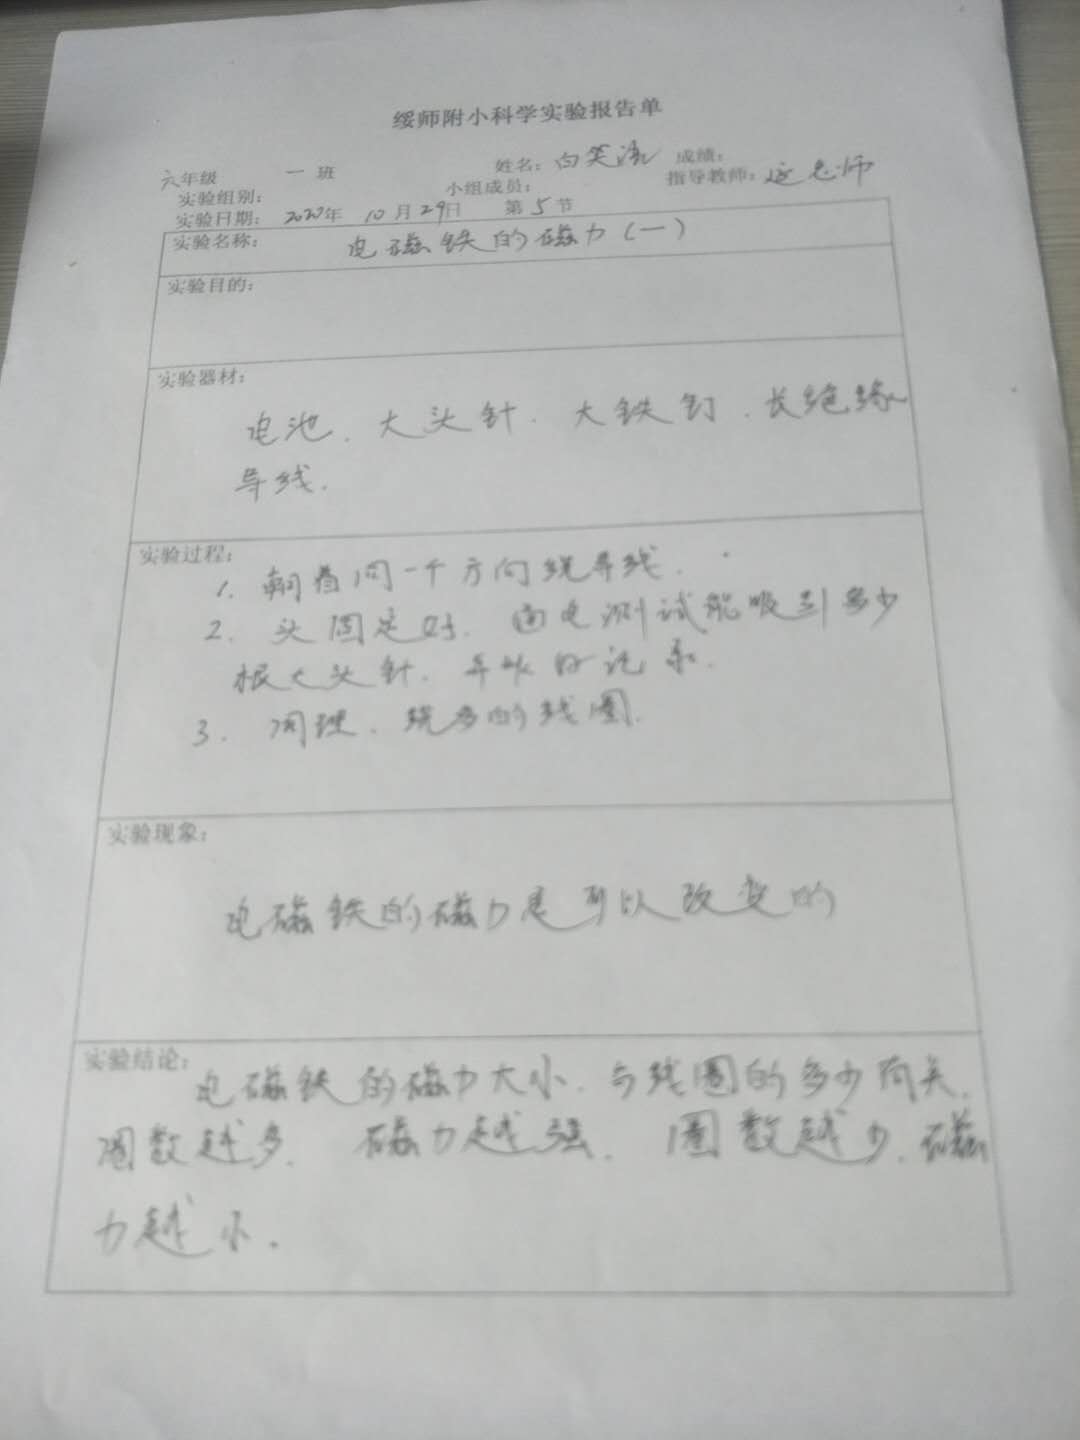 绥师附小科学实验报告单
六年级 一 班 姓名：白笑 成绩：
实验组别： 小组成员： 指导教师：延老师
实验日期： 2020年 10月29日 第5节
实验名称： 电磁铁的磁力(一)
实验目的：
实验器材：
电池、大头针、大铁钉、长绝缘
导线.
实验过程：
1. 朝着同一个方向绕导线.
2. 头固定好. 通电测试能吸到多少
根大头针. 并做好记录.
3. 同理. 绕多的线圈.
实验现象：
电磁铁的磁力是可以改变的
实验结论：
电磁铁的磁力大小. 与线圈的多少有关.
圈数越多. 磁力越强. 圈数越少. 磁
力越小.